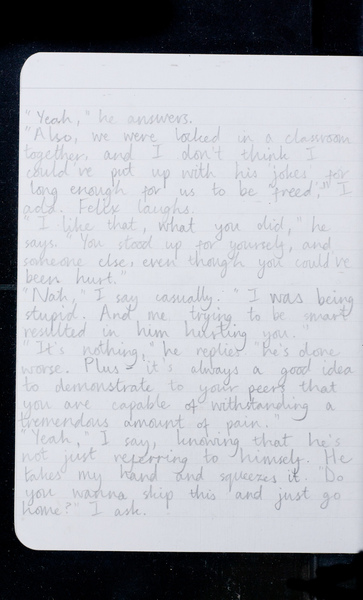 "Yeah," he answers.
"Also, we were locked in a classroom
together, and I don't think I
could've put up with his jokes for
long enough for us to be "freed," I
add. Felix laughs.
"I like that, what you did," he
says. "You stood up for yourself, and
someone else, even though you could've
been hurt."
"Nah," I say casually. "I was being
stupid. And me trying to be smart
resulted in him hurting you."
"It's nothing," he replies "he's done
worse. Plus - it's always a good idea
to demonstrate to your peers that
you are capable of withstanding a
tremendous amount of pain."
"Yeah," I say, knowing that he's
not just referring to himself. He
takes my hand and squeezes it. "Do
you wanna skip this and just go
home?" I ask.